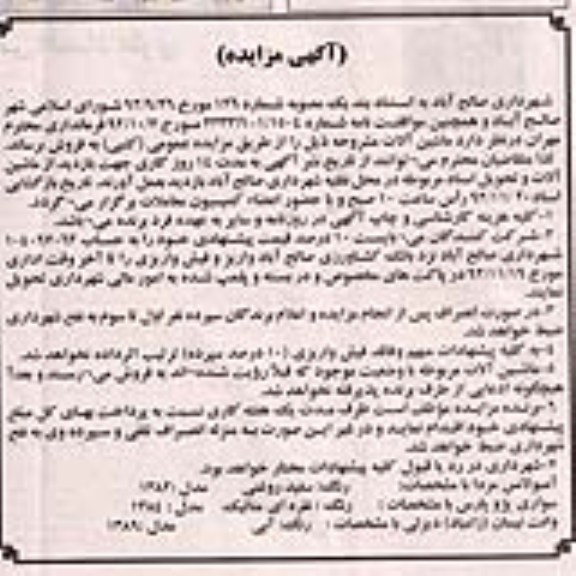 (آگهی مزایده)
شهرداری صالح آباد به استناد بند یک مصوبه شماره ۱۳۹ مورخ ۹۲/۹/۲۹ شورای اسلامی شهر
صالح آباد و همچنین موافقت نامه شماره مورخ ۹۲/۱۰/۷ فرمانداری محترم
مهران درنظر دارد ماشین آلات مشروحه ذیل را از طریق مزایده عمومی (کتبی) به فروش برساند.
لذا متقاضیان محترم می توانند از تاریخ نشر آگهی به مدت ۱۴ روز کاری جهت بازدید از ماشین
آلات و تحویل اسناد مربوطه در محل نقلیه شهرداری صالح آباد بازدید بعمل آورند. تاریخ بازگشایی
اسناد ۹۲/۱۱/۲۰ رأس ساعت ۱۰ صبح و با حضور اعضاء کمیسیون معاملات برگزار می گردد.
۱-کلیه هزینه کارشناسی و چاپ آگهی در روزنامه و سایر به عهده فرد برنده می باشد.
۲-شرکت کنندگان می بایست ۱۰ درصد قیمت پیشنهادی خود را به حساب
شهرداری صالح آباد نزد بانک کشاورزی صالح آباد واریز و فیش واریزی را تا آخر وقت اداری
مورخ ۹۲/۱۱/۱۹ در پاکت های مخصوص و در بسته و پلمپ شده به امور مالی شهرداری تحویل
نمایند.
۳-در صورت انصراف پس از انجام مزایده و اعلام برندگان سپرده نفر اول تا سوم به نفع شهرداری
ضبط خواهد شد.
۴-به کلیه پیشنهادات مبهم وفاقد فیش واریزی (۱۰ درصد سپرده) ترتیب اثرداده نخواهد شد.
۵-ماشین آلات مربوطه با وضعیت موجود که قبلا رؤیت شده اند به فروش می رسند و بعداً
هیچگونه ادعایی از طرف برنده پذیرفته نخواهد شد.
۶-برنده مزایده موظف است ظرف مدت یک هفته کاری نسبت به پرداخت بهای کل مبلغ
پیشنهادی خود اقدام نماید و در غیر این صورت به منزله انصراف تلقی و سپرده وی به نفع
شهرداری ضبط خواهد شد.
۷-شهرداری در رد یا قبول کلیه پیشنهادات مختار خواهد بود.
آمبولانس مزدا با مشخصات: رنگ: سفید روغنی مدل: ۱۳۸۶
سواری پژو پارس با مشخصات: رنگ: نقره ای متالیک مدل: ۱۳۸۴
وانت نیسان (زامیاد) دیزلی با مشخصات: رنگ: آبی مدل: ۱۳۸۹